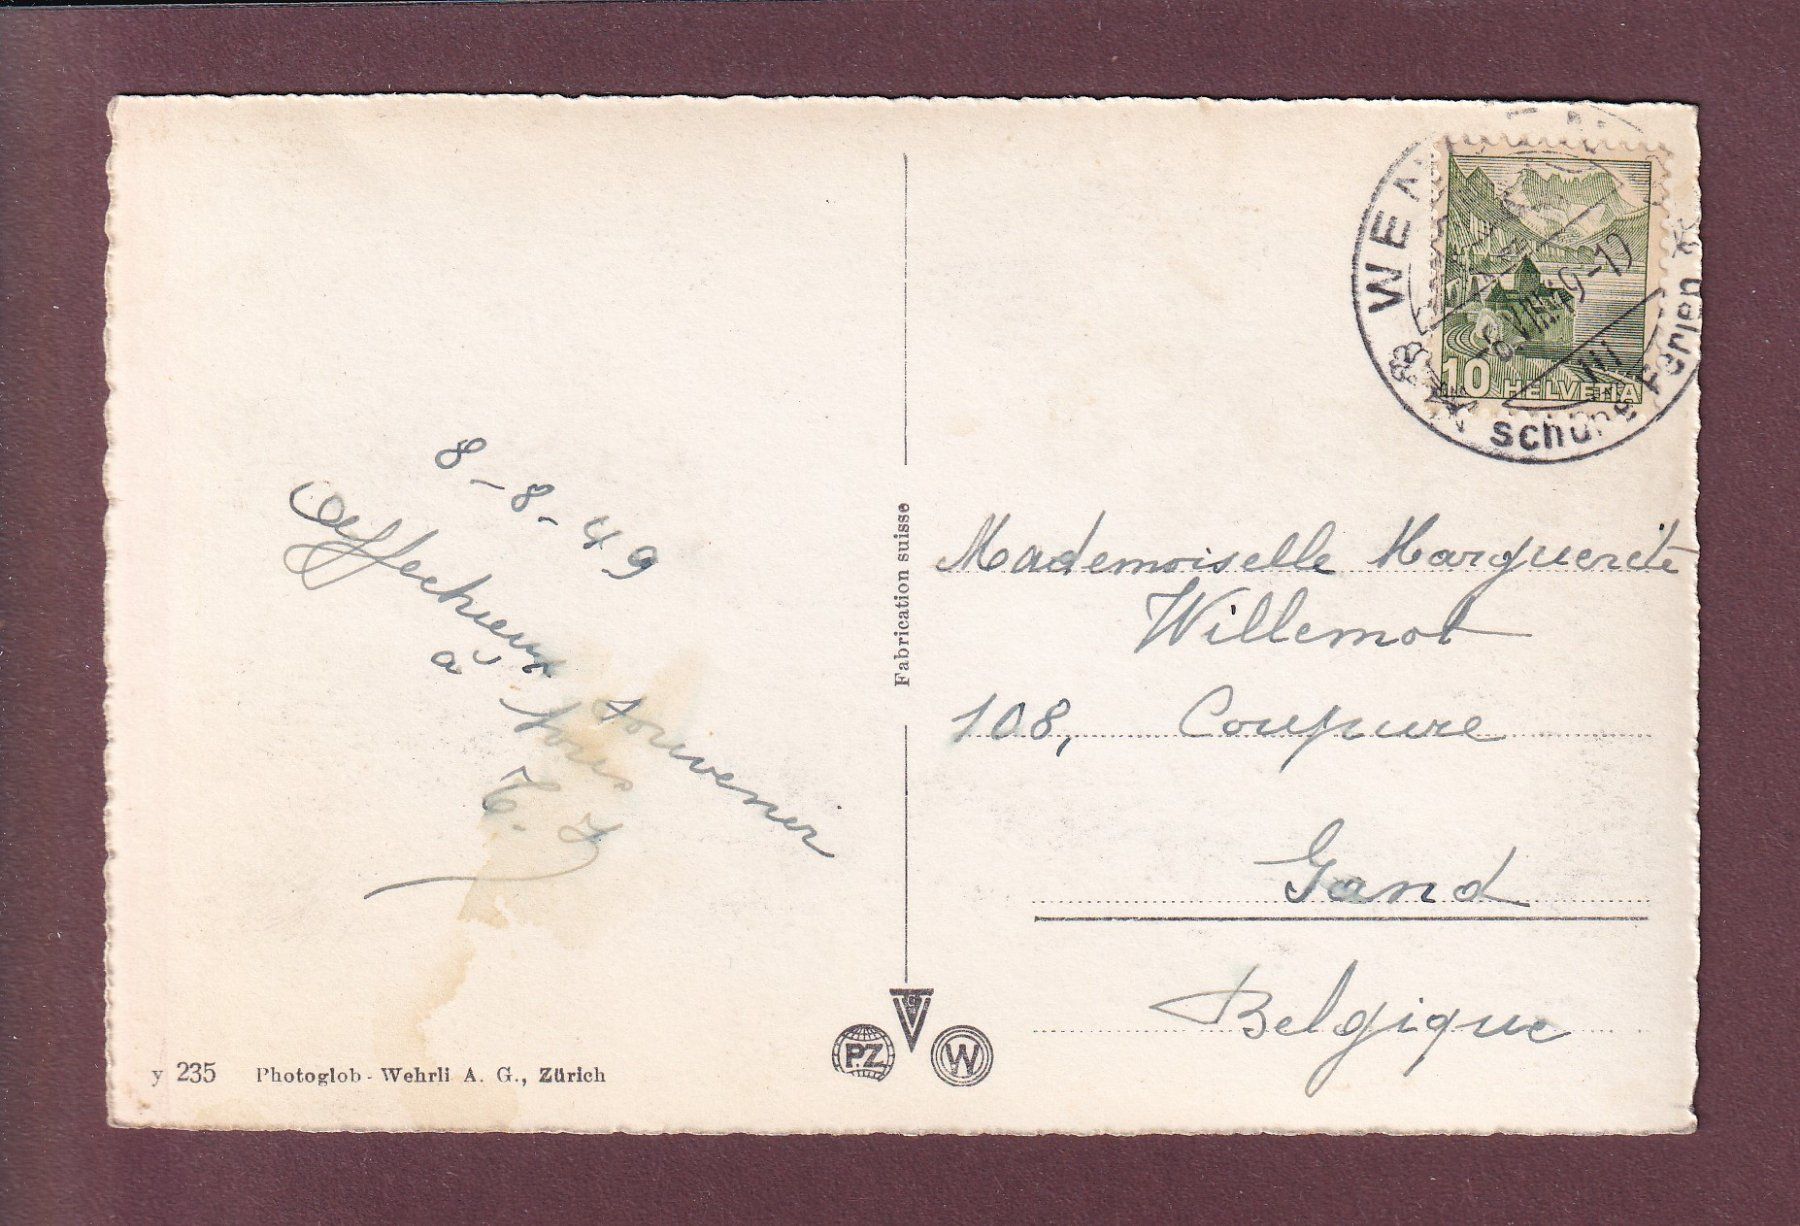 8-8-49
Affectueux souvenir
à vous
Fabrication suisse
P.Z
W
y 235 Photoglob-Wehrli A. G., Zürich
WEN
-8.VIII.49-10
schöne Ferien
10 HELVETIA
Mademoiselle Marguerite
Willemot
108, Coupure
Gand
Belgique